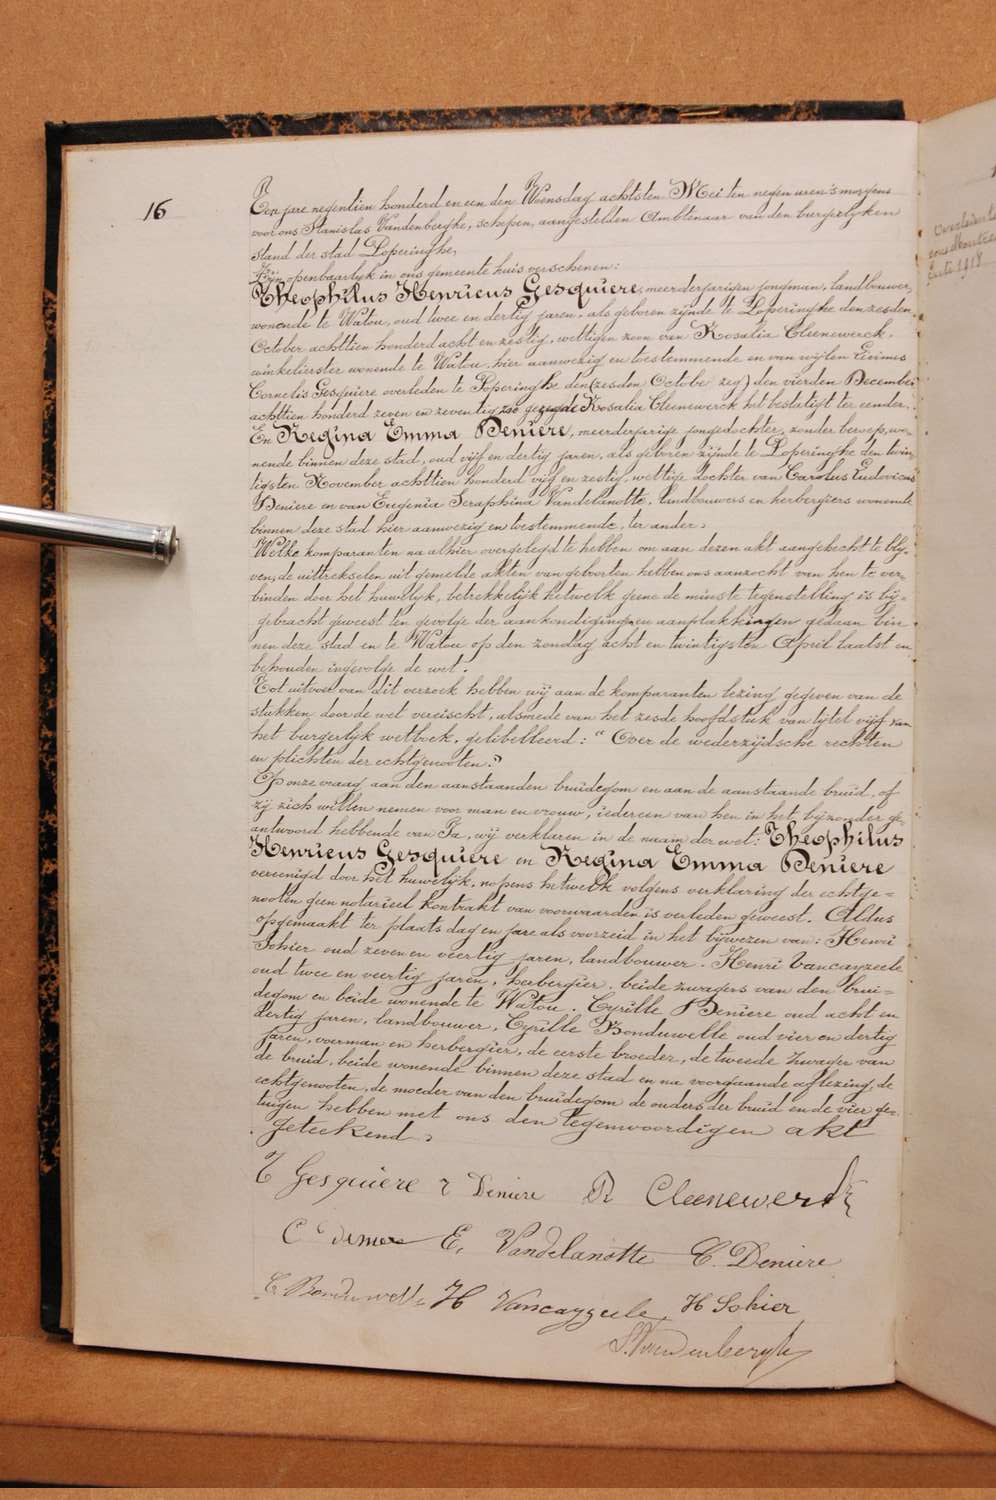 16
Een jare negentien honderd en een den Woensdag achtsten Mei ten negen uren 's morgens
voor ons Stanislas Vandenberghe, schepen, aangestelden Ambtenaar van den burgelyken
stand der stad Poperinghe,
Zijn openbaarlyk in ons gemeente huis verschenen:
Theophilus Henricus Gesquiere, meerderjarigen jongman, landbouwer,
wonende te Watou, oud twee en dertig jaren, als geboren zijnde te Poperinghe den zesden
October achttien honderd acht en zestig, wettigen zoon van Rosalia Cleenewerck,
winkelierster wonende te Watou, hier aanwezig en toestemmende en van wijlen
Cornelis Gesquiere overleden te Poperinghe den (zesden Octobe zeg) den vierden December
achttien honderd zeven en zeventig zoo gezegde Rosalia Cleenewerck het bestatigt ter eender.
En Regina Emma Deniere, meerderjarige jongedochter, zonder beroep, wo-
nende binnen deze stad, oud vijf en dertig jaren, als geboren zijnde te Poperinghe den twin
tigsten November achttien honderd vijf en zestig, wettige dochter van Carolus Ludovicus
Deniere en van Eugenia Seraphina Vandelanotte, landbouwers en herbergiers wonende
binnen deze stad hier aanwezig en toestemmende, ter ander,
Welke komparanten na alhier overgelegd te hebben om aan dezen akt aangehecht te bly-
ven, de uittrekselen uit gemelde akten van geboorten hebben ons aanzocht van hen te ver-
binden door het huwelyk, betrekkelijk hetwelk geene de minste tegenstelling is by-
gebracht geweest ten gevolge der aankondigingen en aanplakkingen gedaan bin
nen deze stad en te Watou op den zondag acht en twintigsten April laatst en
behouden ingevolge de wet.
Tot uitvoer van dit verzoek hebben wij aan de komparanten lezing gegeven van de
stukken door de wet vereischt, alsmede van het zesde hoofdstuk van tytel vijf van
het burgerlyk wetboek, gelibelleerd: "Over de wederzijdsche rechten
en plichten der echtgenooten."
Op onze vraag aan den aanstaanden bruidegom en aan de aanstaande bruid, of
zij zich willen nemen voor man en vrouw, iedereen van hen in het byzonder ge
antwoord hebbende van Ja, wij verklaren in de naam der wet: Theophilus
Henricus Gesquiere en Regina Emma Deniere
vereenigd door het huwelijk, nopens hetwelk volgens verklaring der echtge-
nooten geen notarieel kontrakt van voorwaarden is verleden geweest. Aldus
opgemaakt ter plaats dag en jare als voorzeid in het bijwezen van: Henri
Sohier oud zeven en veertig jaren, landbouwer. Henri Vancayzeele
oud twee en veertig jaren, herbergier, beide zwagers van den brui-
degom en beide wonende te Watou. Cyrille Deniere oud acht en
dertig jaren, landbouwer, Cyrille Bonduwelle oud vier en dertig
jaren, voerman en herbergier, de eerste broeder, de tweede zwager van
de bruid, beide wonende binnen deze stad en na voorgaande aflezing, de
echtgenooten, de moeder van den bruidegom de ouders der bruid en de vier ge-
tuigen hebben met ons den tegenwoordigen akt
geteekend,
T Gesquiere r Deniere R Cleenewerck
C L deniere E, Vandelanotte C. Deniere
C. Bonduwelle H Vancayzeele H Sohier
S. Vandenberghe